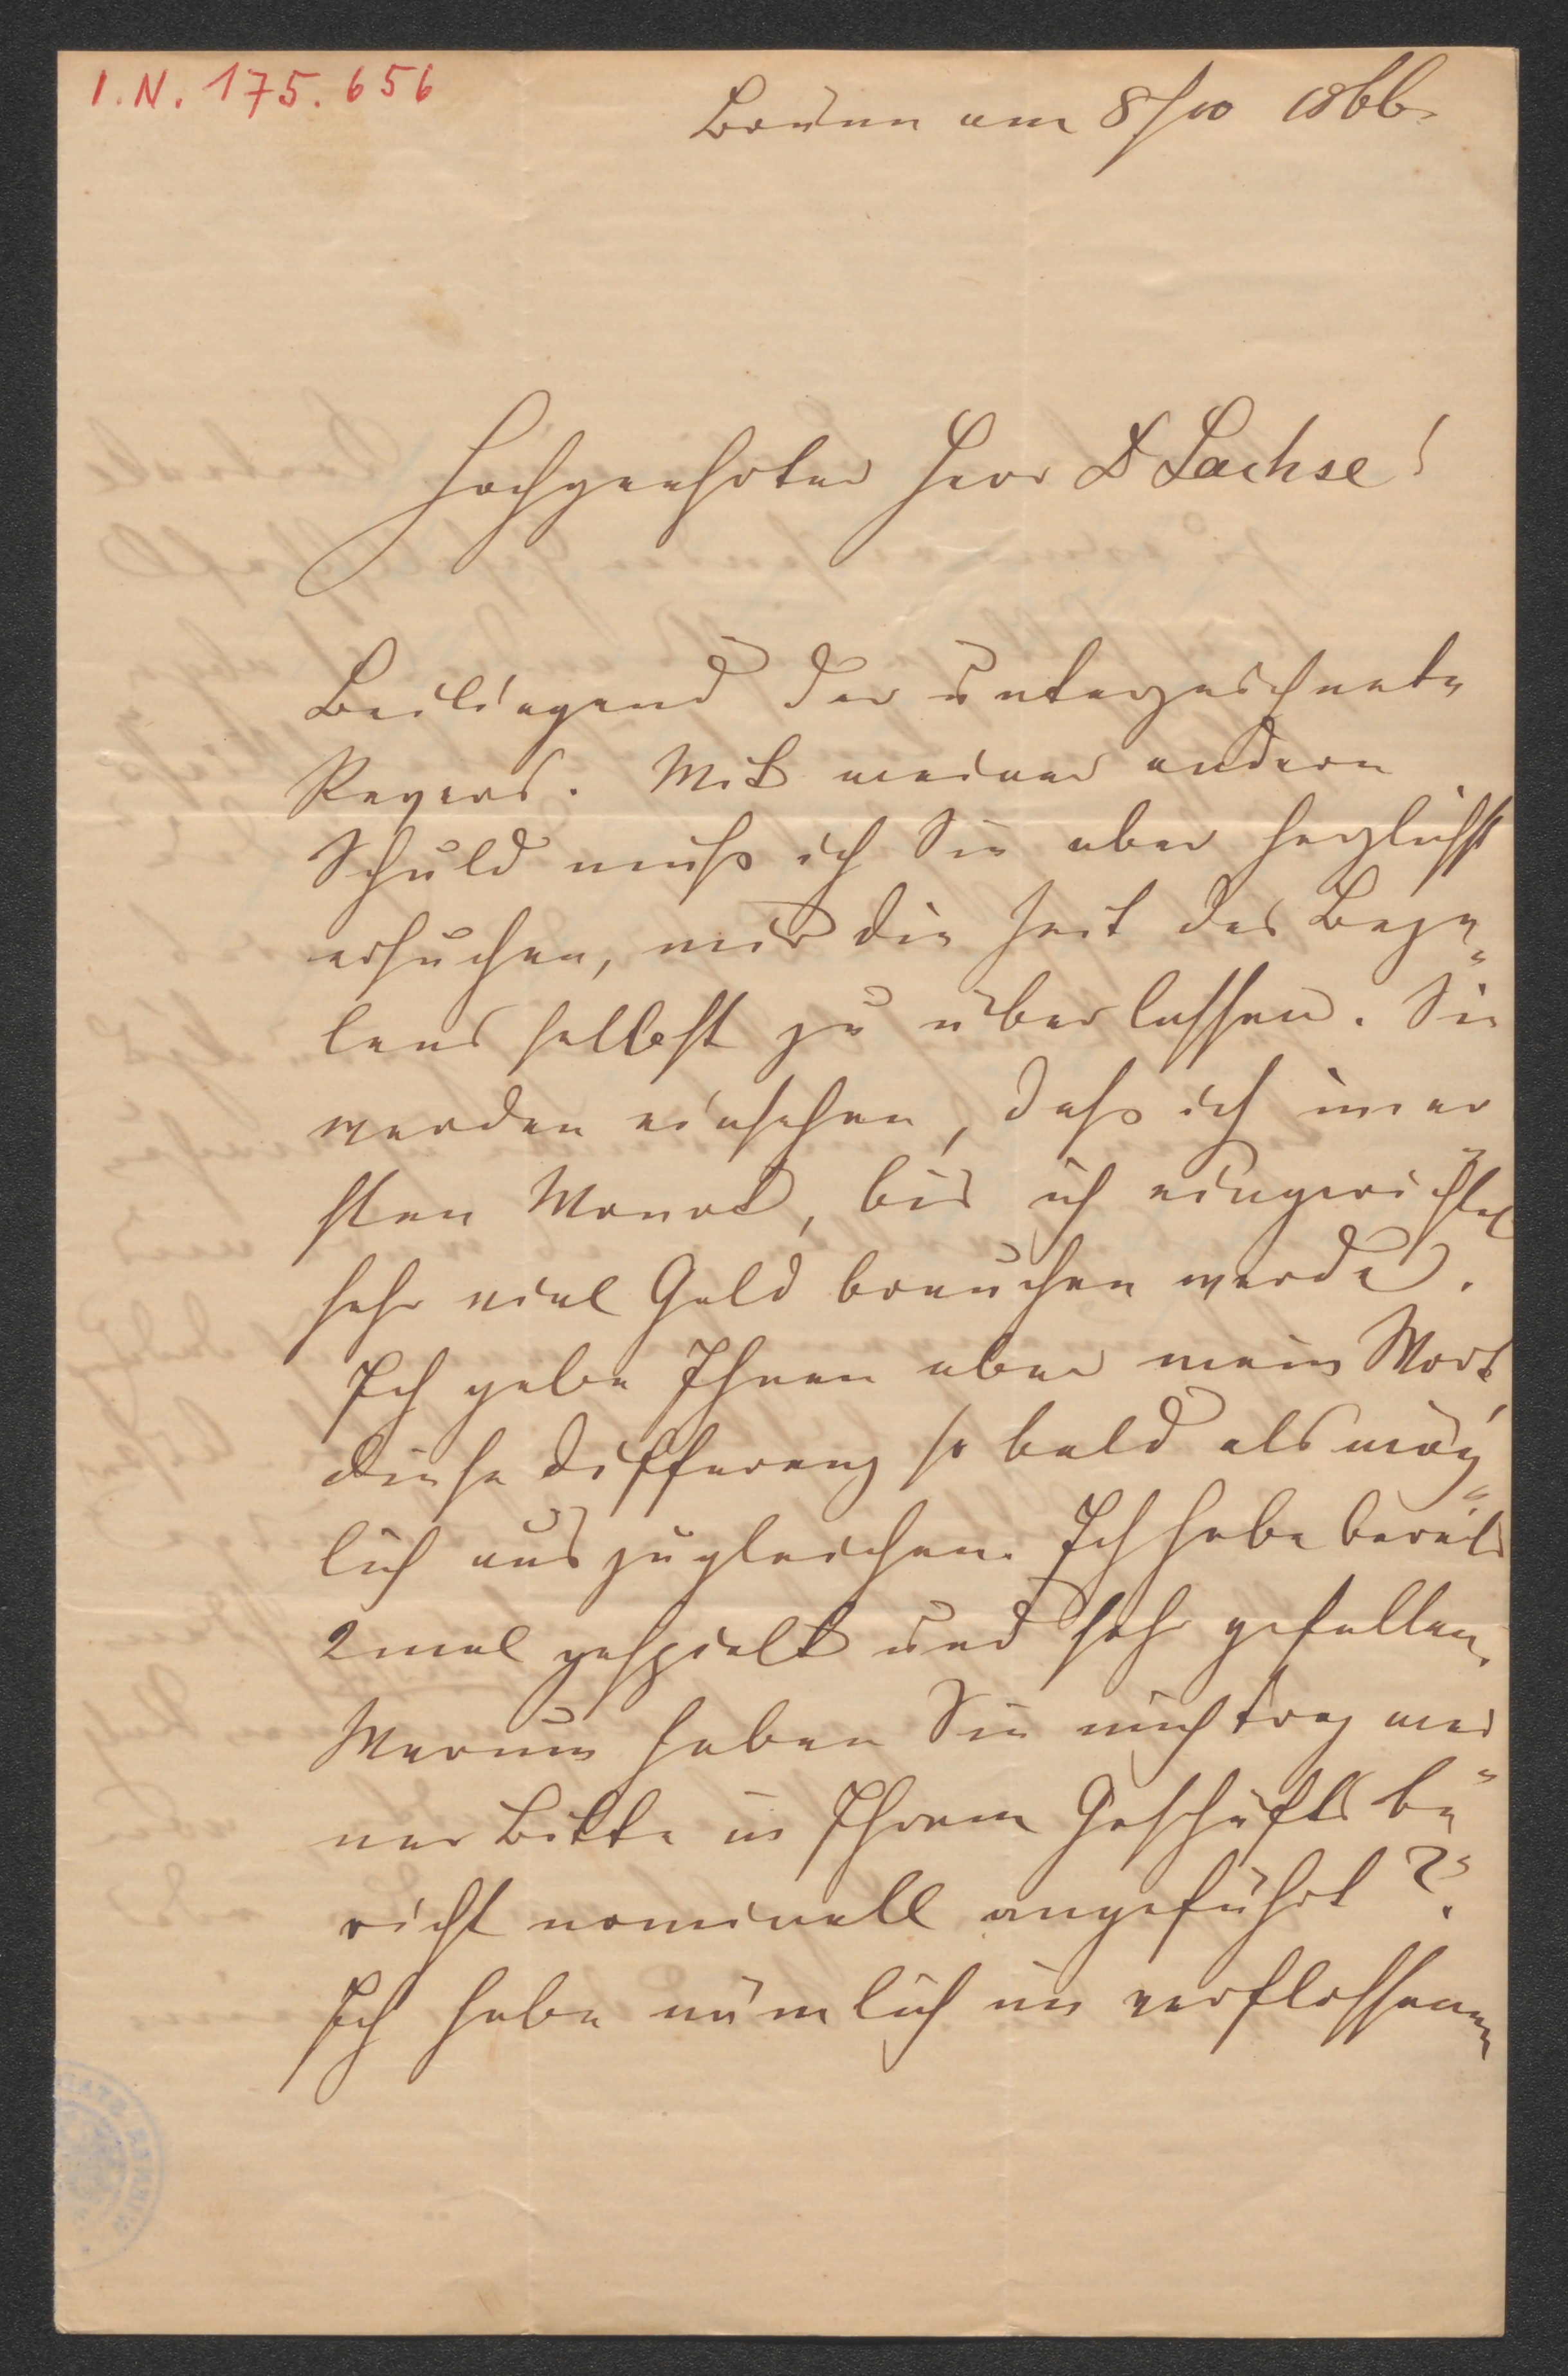 I.N. 175.656
Brünn am 8/10 1866
Hochgeehrter Herr D Sachse!
Beiliegend der unterzeichnete
Revers. Mit meiner andern
Schuld muß ich Sie aber herzlichst
ersuchen, mir die Zeit des Beza„
lens selbst zu überlassen. Sie
werden einsehen, daß ich im er
sten Monat, bis ich eingerichtet
sehr viel Geld brauchen werde.
Ich gebe Ihnen aber mein Wort
diese Differenz so bald als mög„
lich auszugleichen. Ich habe bereits
2mal gespielt und sehr gefallen.
Warum haben Sie mich trotz mei
ner Bitte in Ihrem Geschäfts be„
richt nominell angeführt?
Ich habe nämlich im verflossenen